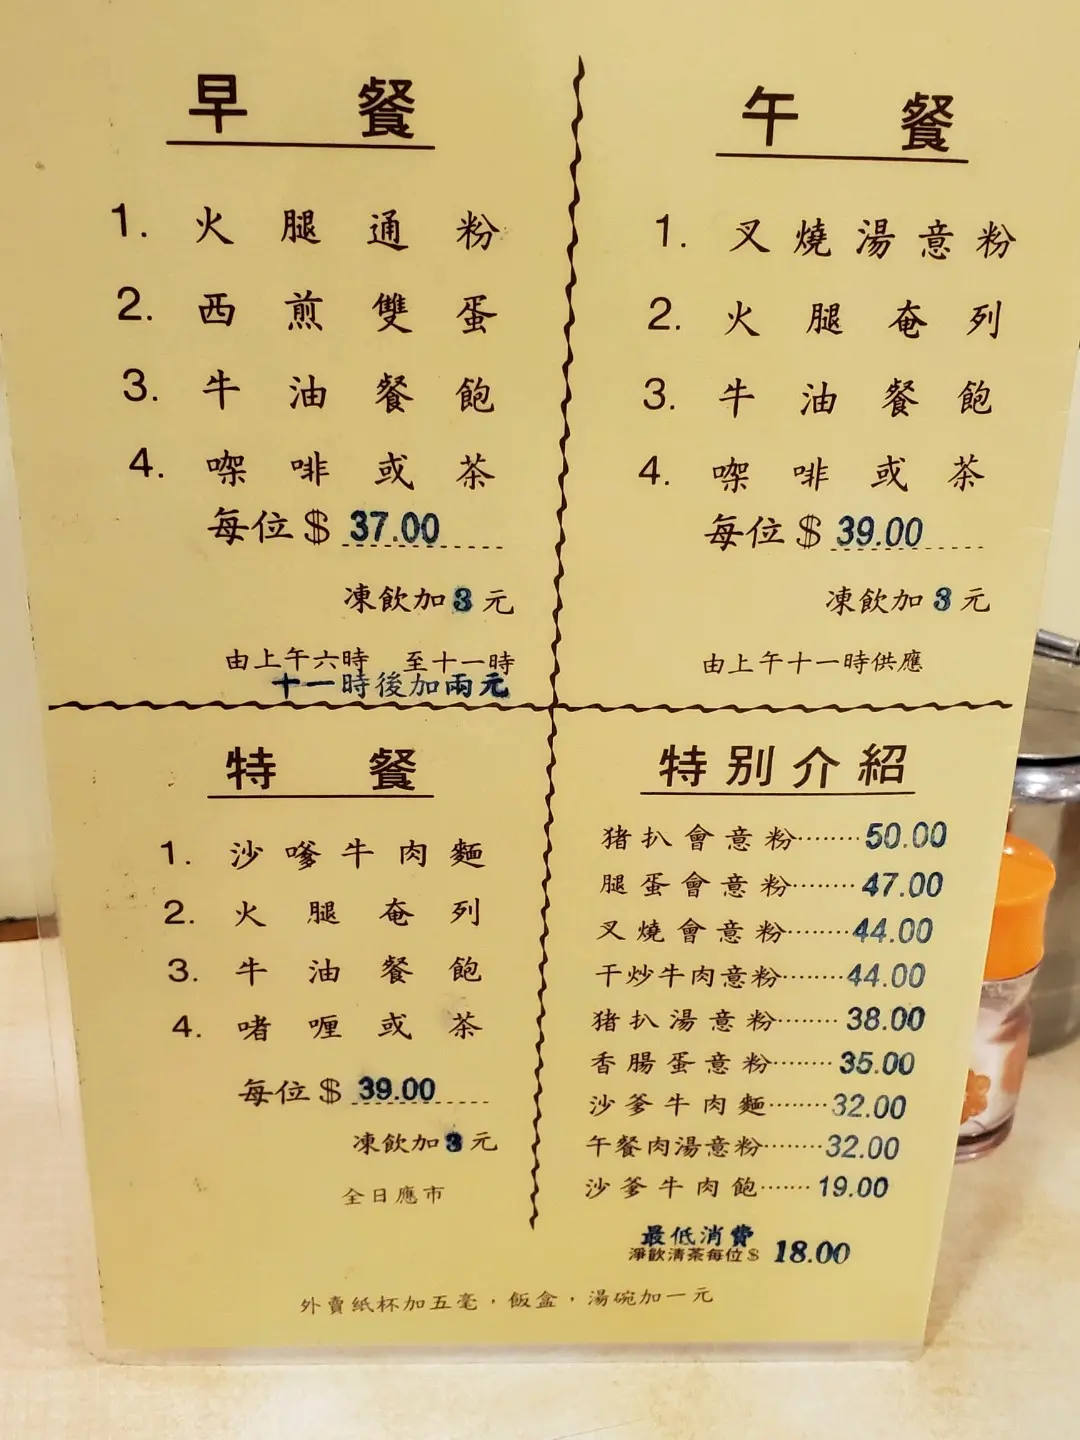 早餐
1. 火腿通粉
2. 西煎雙蛋
3. 牛油餐飽
4. 㗎啡或茶
每位$ 37.00
凍飲加3元
由上午六時 至十一時
十一時後加兩元
午餐
1. 叉燒湯意粉
2. 火腿奄列
3. 牛油餐飽
4. 㗎啡或茶
每位$ 39.00
凍飲加3元
由上午十一時供應
特餐
1. 沙嗲牛肉麵
2. 火腿奄列
3. 牛油餐飽
4. 啫喱或茶
每位$ 39.00
凍飲加3元
全日應市
特別介紹
猪扒會意粉········50.00
腿蛋會意粉········47.00
叉燒會意粉········44.00
干炒牛肉意粉········44.00
猪扒湯意粉········38.00
香腸蛋意粉········35.00
沙爹牛肉麵········32.00
午餐肉湯意粉·······32.00
沙爹牛肉飽······19.00
最低消費
淨飲清茶每位$ 18.00
外賣紙杯加五毫，飯盒，湯碗加一元